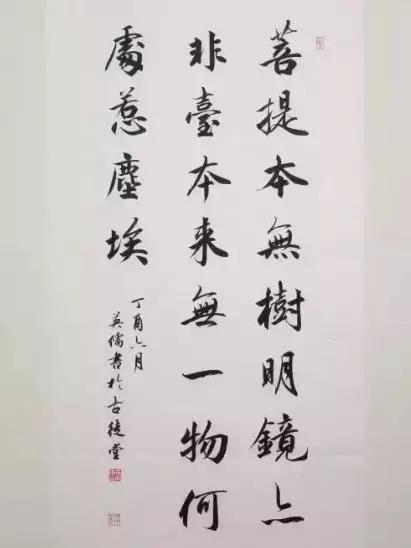 菩提本無樹明鏡亦
非臺本来無一物何
處惹塵埃
丁酉六月
英儒書於古徒堂